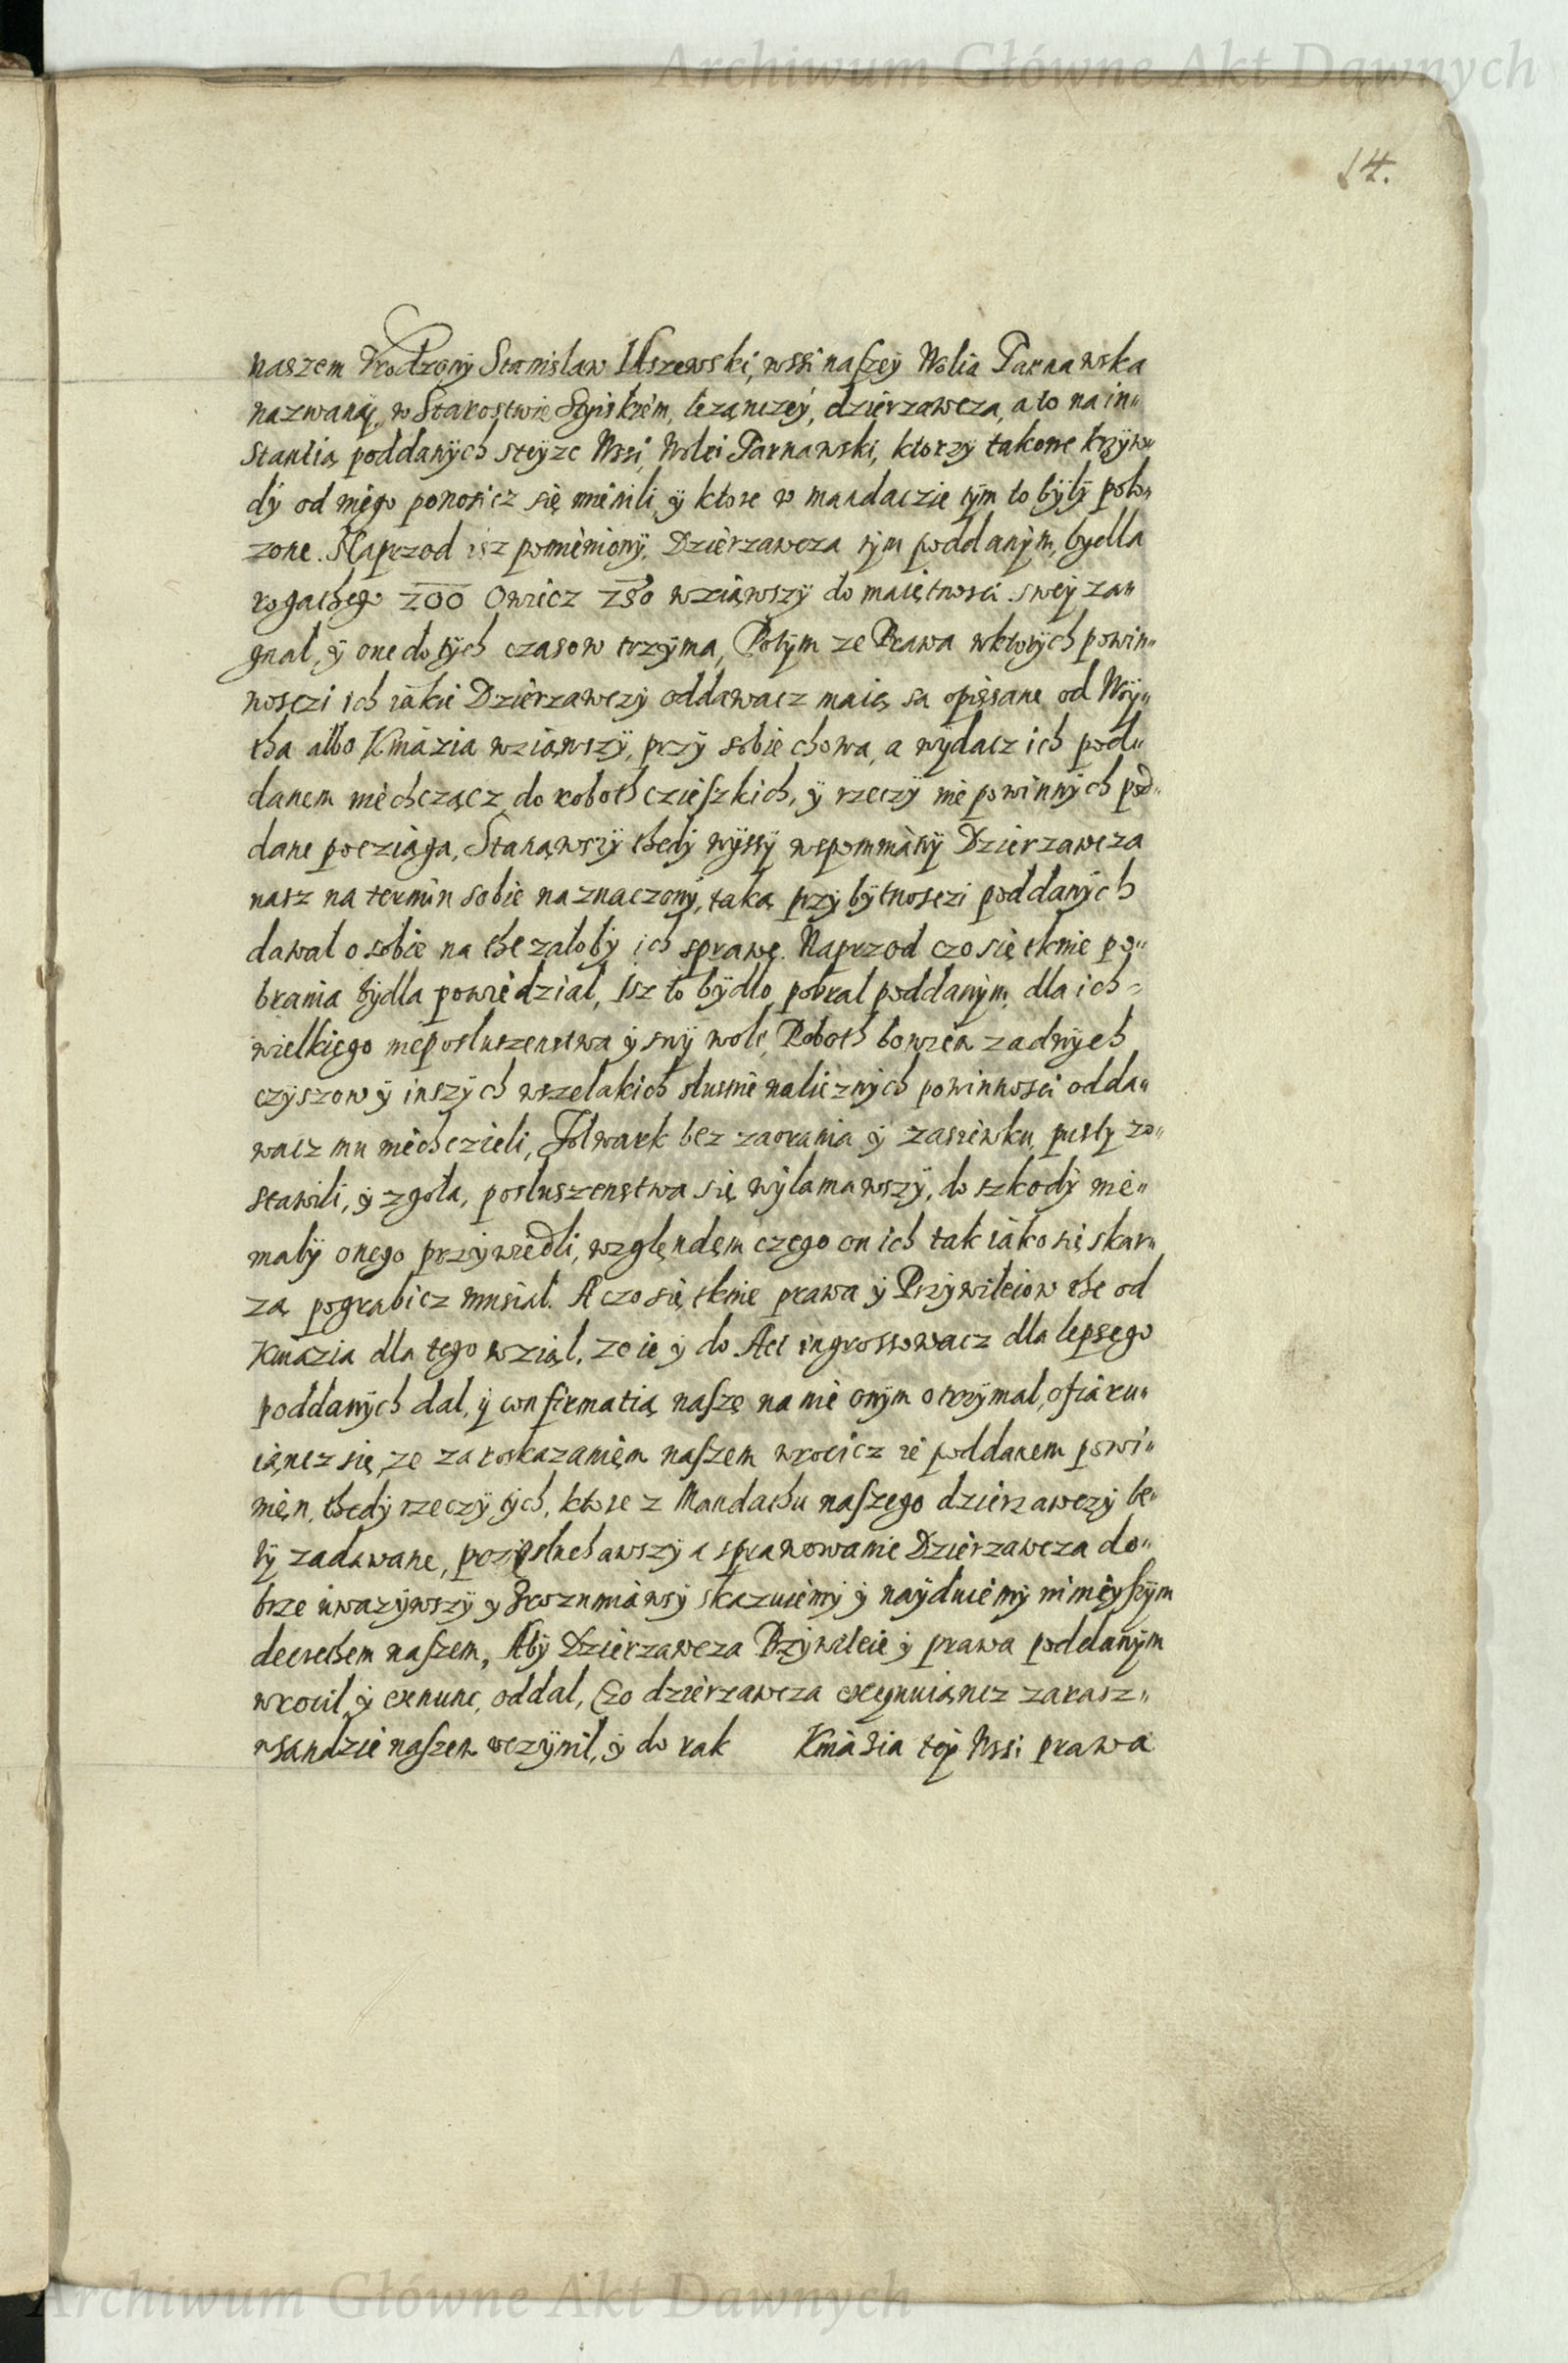 Archiwum Główne Akt Dawnych
14.
naszem Vrodzony Stanislaw Uszewski, wssi naszey Wolia Tarnawska
nazwany, w Starostwie lezanczey, dzierzawcza, a to na in„
stantią poddanych steyze Wssi Wolei Tarnawski, ktorzy takowe krzyw„
dy od niego ponosicz się mienili, y ktore w mandaczie tym to były poło„
zone. Naprzod isz pomieniony Dzierzawcza tym poddanym, bydla
rogathego 200 Owiecz wziąwszy do maiętnosci swey za„
gnal, y one do tych czasow trzyma, Potym ze Prawa wktorych powin„
nosczi ich iakie Dzierzawczy oddawacz maią sa opissane od Wóy„
tha albo Kniazia wziąwszy, przy sobie chowa, a wydacz ich pod„
danem niechcząc, do roboth czieszkich, y rzeczy nie powinnych pod„
dane pocziąga, Stanąwszy thedy wyssy wspomniány Dzierzawcza
nasz na termin sobie naznaczony, taką przy bytnosczi poddanych
dawal o sobie na the załoby ich sprawę. Naprzod czo się tknie po„
brania bydla powiedzial, Isz to bydlo pobral poddanym, dla ich
wielkiego nieposluszenstwa y swy wole, Roboth bowiem zadnych
czyszow y inszych wszelakich slusnie nalieznych powinnosci odda„
wacz mu niechczieli, Folwark bez zaorania y zasiewku pusty zo„
stawili, y zgoła, posłuszenstwa się wyłamawszy, do szkody nie„
mały onego przywiedli, względem czego on ich tak iako się skar„
zą pograbicz musial. A czo się tknie prawa y Przywileiow the od
Kniazia dla tego wziąl, ze ie y do Act ingrossowacz dla lepsego
poddanych dal, y confirmatią naszę na nie onym otrzymal, ofiaru„
iąncz się, ze za roskazaniem naszem wrocicz ie poddanem powi„
nien, thedy rzeczy tych, ktore z Mandathu naszego dzierzawczy be„
ły zadawane, przysłuchawszy a sprawowanie Dzierzawcza do„
brze uwazywszy y zrozumiawsy skazuiemy y nayduiemy ninieyszym
decrethem naszem, Aby Dzierzawcza Przywileie y prawa poddanym
wrocil y exnunc, oddal, Czo dzierzawcza exequuiąncz zarasz„
wsandzie naszem uczynil, y do rak Kniazia tey Wssi prawa
Archiwum Główne Akt Dawnych